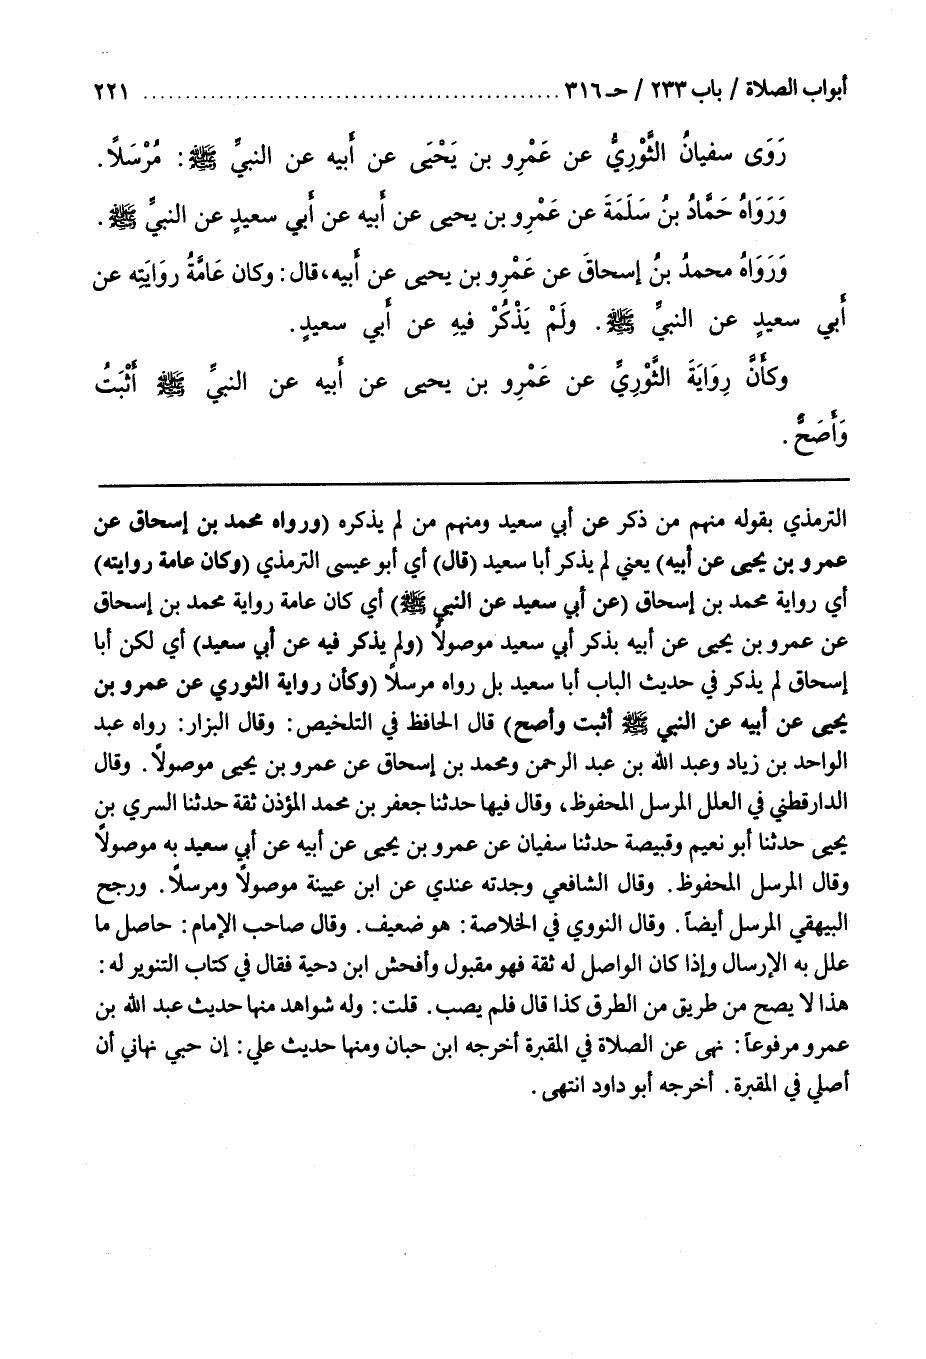 أبواب الصلاة / باب ٢٣٣ / حـ ٣١٦ ................................................ ٢٢١
رَوَى سفيانُ الثَّوْرِيُّ عن عَمْرِو بن يَحْيَى عن أَبيه عن النبيِّ ﷺ: مُرْسَلاً.
وَرَوَاهُ حَمَّادُ بنُ سَلَمَةَ عن عَمْرِو بن يحيى عن أَبيه عن أَبي سعيدٍ عن النبيِّ ﷺ.
وَرَوَاهُ محمدُ بنُ إسحاقَ عن عَمْرِو بن يحيى عن أَبيه، قال: وكان عَامَّةُ روَايَتِه عن
أَبي سعيدٍ عن النبيِّ ﷺ. ولَمْ يَذْكُرْ فيهِ عن أَبي سعيدٍ.
وكأَنَّ رِوَايَةَ الثَّوْرِيِّ عن عَمْرِو بن يحيى عن أَبيه عن النبيِّ ﷺ أَثْبَتُ
وَأَصَحُّ.
الترمذي بقوله منهم من ذكر عن أبي سعيد ومنهم من لم يذكره (ورواه محمد بن إسحاق عن
عمرو بن يحيى عن أبيه) يعني لم يذكر أبا سعيد (قال) أي أبو عيسى الترمذي (وكان عامة روايته)
أي رواية محمد بن إسحاق (عن أبي سعيد عن النبي ﷺ) أي كان عامة رواية محمد بن إسحاق
عن عمرو بن يحيى عن أبيه بذكر أبي سعيد موصولاً (ولم يذكر فيه عن أبي سعيد) أي لكن أبا
إسحاق لم يذكر في حديث الباب أبا سعيد بل رواه مرسلاً (وكأن رواية الثوري عن عمرو بن
يحيى عن أبيه عن النبي ﷺ أثبت وأصح) قال الحافظ في التلخيص: وقال البزار: رواه عبد
الواحد بن زياد وعبد الله بن عبد الرحمن ومحمد بن إسحاق عن عمرو بن يحيى موصولاً. وقال
الدارقطني في العلل المرسل المحفوظ، وقال فيها حدثنا جعفر بن محمد المؤذن ثقة حدثنا السري بن
يحيى حدثنا أبو نعيم وقبيصة حدثنا سفيان عن عمرو بن يحيى عن أبيه عن أبي سعيد به موصولاً
وقال المرسل المحفوظ. وقال الشافعي وجدته عندي عن ابن عيينة موصولاً ومرسلاً. ورجح
البيهقي المرسل أيضاً. وقال النووي في الخلاصة: هو ضعيف. وقال صاحب الإمام: حاصل ما
علل به الإرسال وإذا كان الواصل له ثقة فهو مقبول وأفحش ابن دحية فقال في كتاب التنوير له:
هذا لا يصح من طريق من الطرق كذا قال فلم يصب. قلت: وله شواهد منها حديث عبد الله بن
عمرو مرفوعاً: نهى عن الصلاة في المقبرة أخرجه ابن حبان ومنها حديث علي: إن حبي نهاني أن
أصلي في المقبرة. أخرجه أبو داود انتهى.